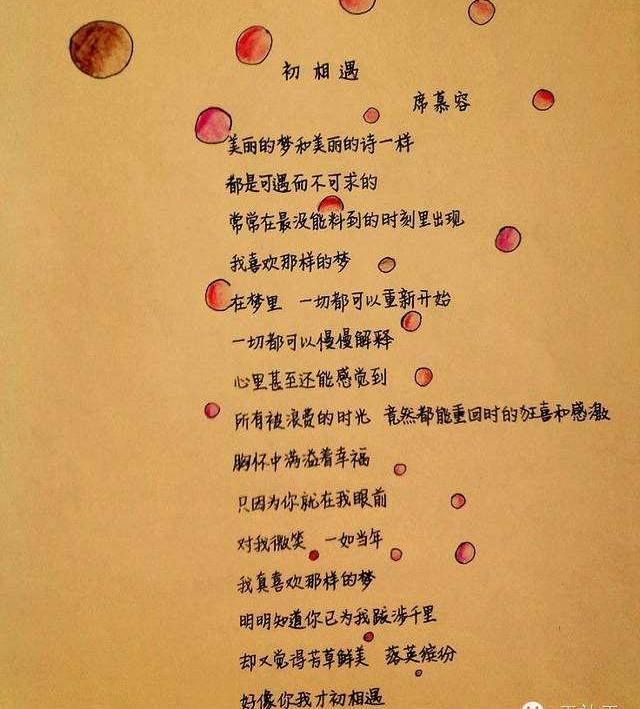 初相遇
席慕容
美丽的梦和美丽的诗一样
都是可遇而不可求的
常常在最没能料到的时刻里出现
我喜欢那样的梦
在梦里 一切都可以重新开始
一切都可以慢慢解释
心里甚至还能感觉到
所有被浪费的时光 竟然都能重回时的狂喜和感激
胸怀中满溢着幸福
只因为你就在我眼前
对我微笑 一如当年
我真喜欢那样的梦
明明知道你已为我跋涉千里
却又觉得芳草鲜美 落英缤纷
好像你我才初相遇